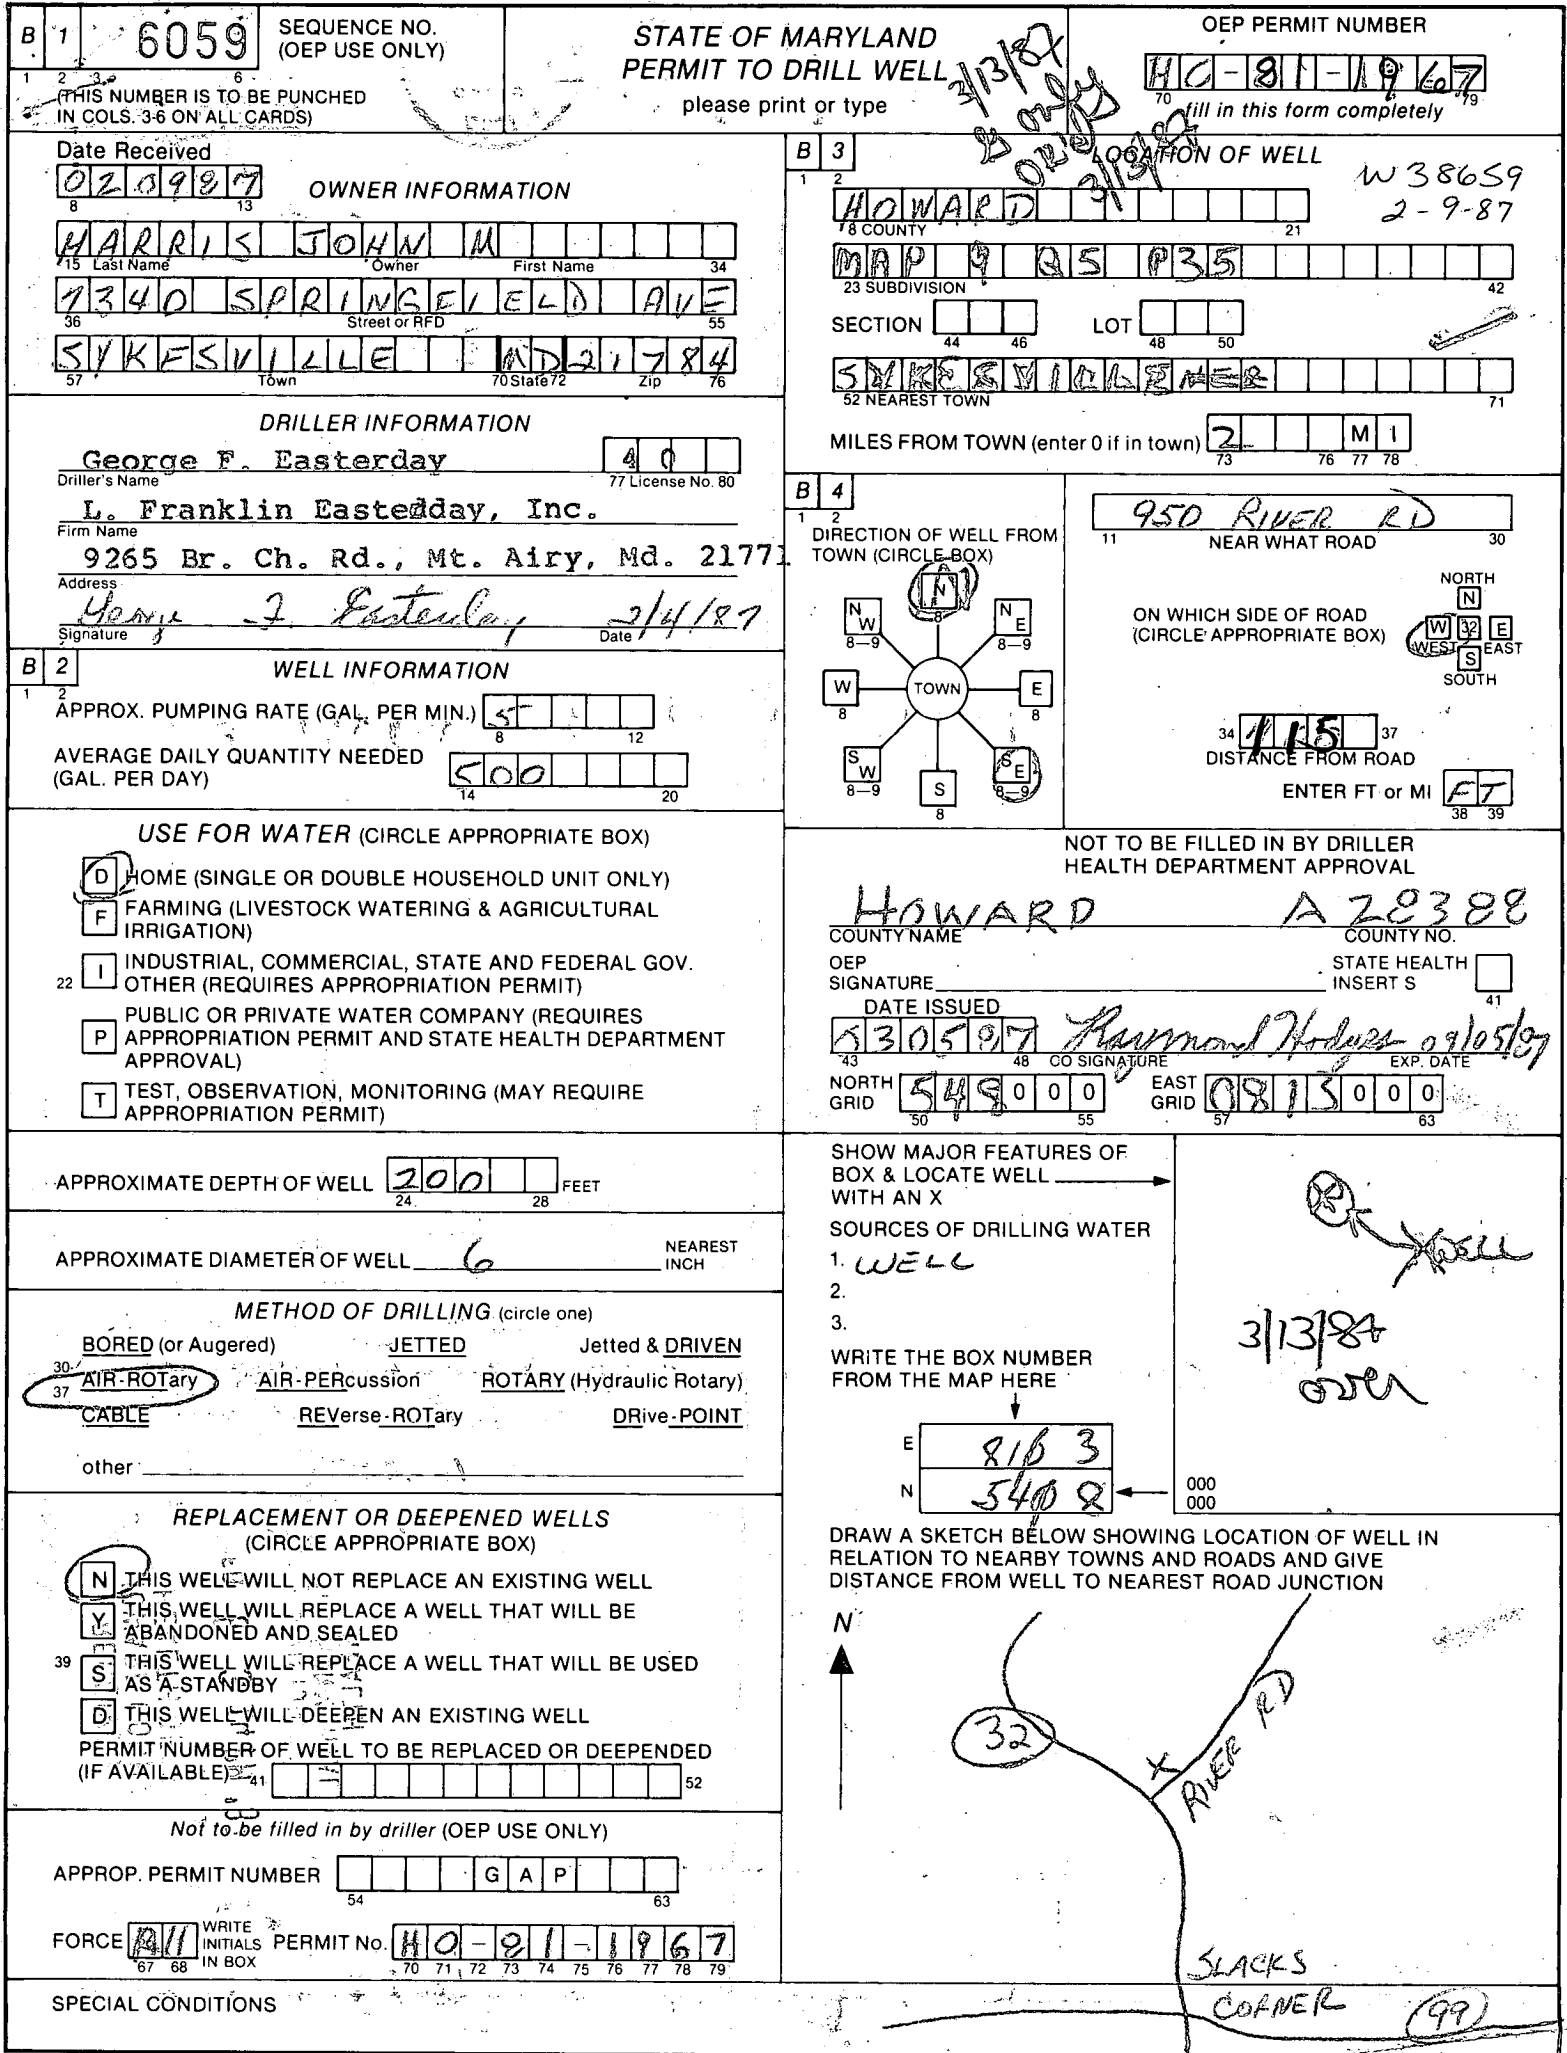 B 1 6059 SEQUENCE NO. (OEP USE ONLY)
1 2 3 6
(THIS NUMBER IS TO BE PUNCHED
IN COLS. 3-6 ON ALL CARDS)
STATE OF MARYLAND
PERMIT TO DRILL WELL
please print or type
3/13/87
only
3/13/87
OEP PERMIT NUMBER
HO-81-1967
70 79
fill in this form completely
Date Received
020987
8 13
OWNER INFORMATION
HARRIS JOHN M
15 Last Name Owner First Name 34
7340 SPRINGFIELD AVE
36 Street or RFD 55
SYKESVILLE MD 21784
57 Town 70 State 72 Zip 76
DRILLER INFORMATION
George F. Easterday 40
Driller's Name 77 License No. 80
L. Franklin Eastedday, Inc.
Firm Name
9265 Br. Ch. Rd., Mt. Airy, Md. 21771
Address
George F. Easterday 2/4/87
Signature Date
B 2 WELL INFORMATION
1 2
APPROX. PUMPING RATE (GAL. PER MIN.) 5
8 12
AVERAGE DAILY QUANTITY NEEDED
(GAL. PER DAY) 500
14 20
USE FOR WATER (CIRCLE APPROPRIATE BOX)
D HOME (SINGLE OR DOUBLE HOUSEHOLD UNIT ONLY)
F FARMING (LIVESTOCK WATERING & AGRICULTURAL
IRRIGATION)
22 I INDUSTRIAL, COMMERCIAL, STATE AND FEDERAL GOV.
OTHER (REQUIRES APPROPRIATION PERMIT)
P PUBLIC OR PRIVATE WATER COMPANY (REQUIRES
APPROPRIATION PERMIT AND STATE HEALTH DEPARTMENT
APPROVAL)
T TEST, OBSERVATION, MONITORING (MAY REQUIRE
APPROPRIATION PERMIT)
APPROXIMATE DEPTH OF WELL 200 FEET
24 28
APPROXIMATE DIAMETER OF WELL 6 NEAREST INCH
METHOD OF DRILLING (circle one)
BORED (or Augered) JETTED Jetted & DRIVEN
30 37
AIR-ROTary AIR-PERcussion ROTARY (Hydraulic Rotary)
CABLE REVerse-ROTary DRive-POINT
other
REPLACEMENT OR DEEPENED WELLS
(CIRCLE APPROPRIATE BOX)
N THIS WELL WILL NOT REPLACE AN EXISTING WELL
Y THIS WELL WILL REPLACE A WELL THAT WILL BE
ABANDONED AND SEALED
39 S THIS WELL WILL REPLACE A WELL THAT WILL BE USED
AS A STANDBY
D THIS WELL WILL DEEPEN AN EXISTING WELL
PERMIT NUMBER OF WELL TO BE REPLACED OR DEEPENDED
(IF AVAILABLE) 41 52
Not to be filled in by driller (OEP USE ONLY)
APPROP. PERMIT NUMBER G A P
54 63
FORCE WRITE INITIALS IN BOX PERMIT No. HO-81-1967
67 68 70 71 72 73 74 75 76 77 78 79
SPECIAL CONDITIONS
B 3 LOCATION OF WELL
1 2
W38659
2-9-87
HOWARD
8 COUNTY 21
MAP 9 Q5 P35
23 SUBDIVISION 42
SECTION LOT
44 46 48 50
SYKESVILLE
52 NEAREST TOWN 71
MILES FROM TOWN (enter 0 if in town) 2 M I
73 76 77 78
B 4
1 2
DIRECTION OF WELL FROM
TOWN (CIRCLE BOX)
N
8
NW NE
8-9 8-9
W TOWN E
8 8
SW SE
8-9 8-9
S
8
950 RIVER RD
11 NEAR WHAT ROAD 30
ON WHICH SIDE OF ROAD
(CIRCLE APPROPRIATE BOX)
NORTH
N
W 32 E
WEST EAST
S
SOUTH
34 115 37
DISTANCE FROM ROAD
ENTER FT or MI FT
38 39
NOT TO BE FILLED IN BY DRILLER
HEALTH DEPARTMENT APPROVAL
HOWARD A 28388
COUNTY NAME COUNTY NO.
OEP
SIGNATURE STATE HEALTH INSERT S
41
DATE ISSUED
030587 Raymond Hodges 09/05/87
43 48 CO SIGNATURE EXP. DATE
NORTH GRID 548000 EAST GRID 0813000
50 55 57 63
SHOW MAJOR FEATURES OF
BOX & LOCATE WELL
WITH AN X
SOURCES OF DRILLING WATER
1. WELL
2.
3.
WRITE THE BOX NUMBER
FROM THE MAP HERE
E 8103
N 5408
000
000
WELL
3/13/87
over
DRAW A SKETCH BELOW SHOWING LOCATION OF WELL IN
RELATION TO NEARBY TOWNS AND ROADS AND GIVE
DISTANCE FROM WELL TO NEAREST ROAD JUNCTION
N
32
X
RIVER RD
SLACKS
CORNER 99